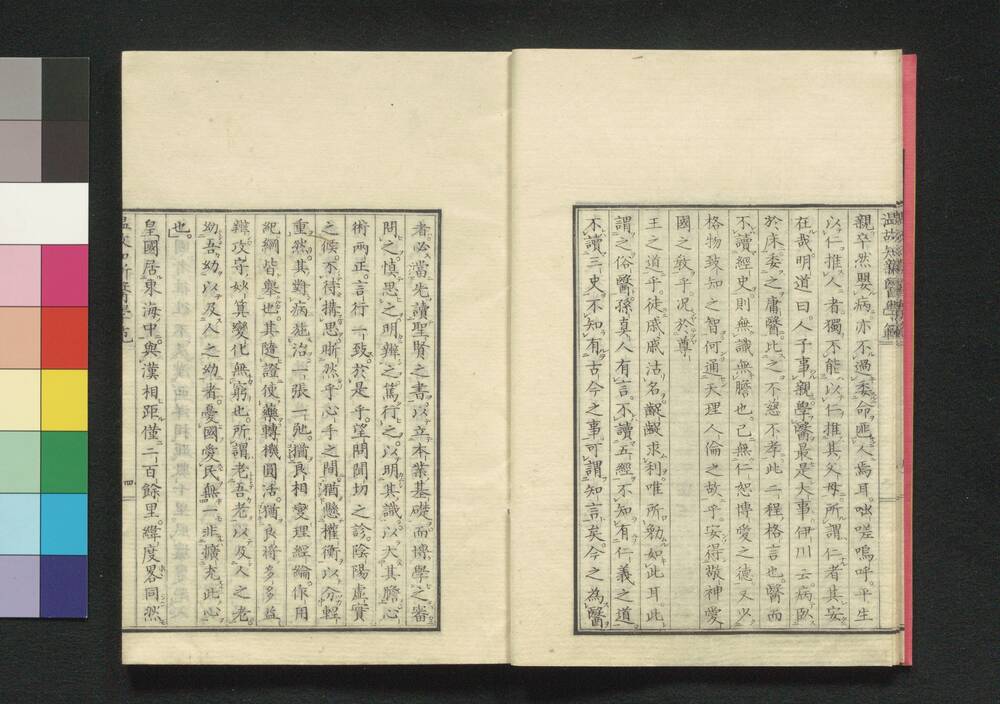 親卒然嬰病。亦不過委命匪人焉耳。咄嗟嗚呼。平生
以仁推人者。獨不能以仁推其父母。所謂仁者其安
在哉。明道曰。人子事親學醫最是大事。伊川云。病臥
於床。委之庸醫。比之不慈不孝。此二程格言也。醫而
不讀經史。則無識無膽也。已無仁恕博愛之德。又以
格物致知之智。何通天理人倫之故乎。安得敬神愛
國之教乎。況於尊
王之道乎。徒戚戚沽名。齪齪求利。唯所勤如此耳。此
謂之俗醫。孫真人有言。不讀五經。不知有仁義之道
不讀三史。不知有古今之事。可謂知言矣。今之為醫
者。必當先讀聖賢之書。以立本業基礎。而博學之審
問之。慎思之。明辨之。篤行之。以明其識。以大其膽。心
術兩正。言行一致。於是乎。望問聞切之診。陰陽虛實
之候。不待搆思。晣然乎心手之間。猶懸權衡以分輕
重然。其對病施治。一張一弛。猶良相燮理經綸。作用
紀綱皆舉也。其隨證使藥。轉機圓活。猶良將多多益
辨。攻守妙算。變化無窮也。所謂老吾老以及人之老
幼吾幼以及人之幼者。憂國愛民。無一非擴充此心
也。
皇國居東海中。與漢相距僅二百餘里。緯度畧同。然
四